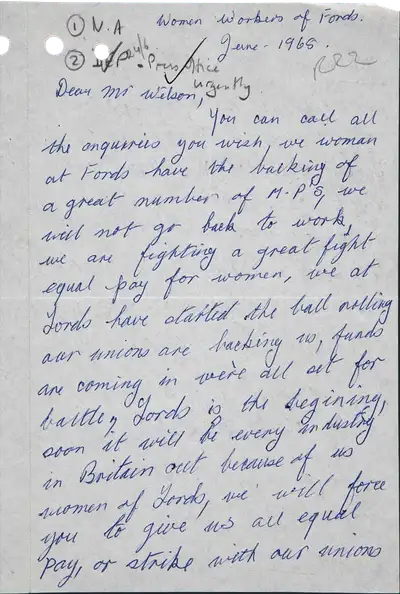 ① N.A
Women Workers of Fords.
June - 1968.
② Press Office
urgently
Dear Mr Wilson,
You can call all
the enquiries you wish, we woman
at Fords have the backing of
a great number of M.P'S, we
will not go back to work,
we are fighting a great fight
equal pay for women, we at
Fords have started the ball rolling
our unions are backing us, funds
are coming in we're all set for
battle, Fords is the begining,
soon it will be every industry
in Britain out because of us
women of Fords, we will force
you to give us all equal
pay, or strike with our unions